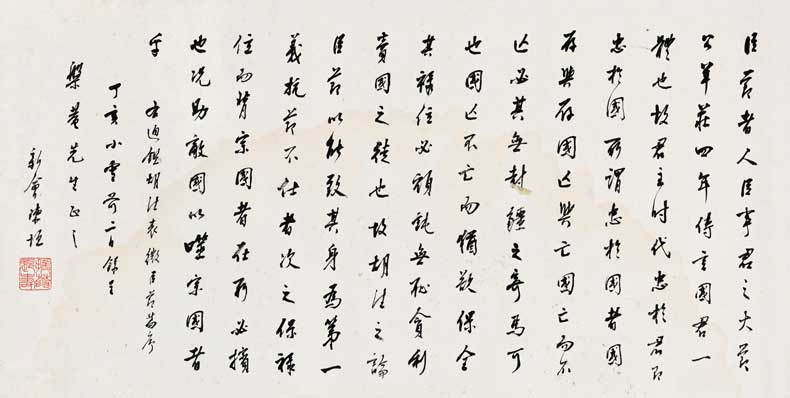 臣節者人臣事君之大節
公羊莊四年傳言國君一
體也故君主時代忠於君即
忠於國所謂忠於國者國
存與存國亡與亡國亡而不
亡必其無封疆之寄焉可
也國亡不亡而猶欲保全
其祿位必頑鈍無恥貪利
賣國之徒也故胡注之論
臣節以能致其身爲第一
義抗節不仕者次之保祿
位而背宗國者在所必擯
也況助敵國以噬宗國者
乎 右通鑑胡注表微臣節篇序
丁亥小雪前二日錄呈
槃菴先生正之
新會陳垣